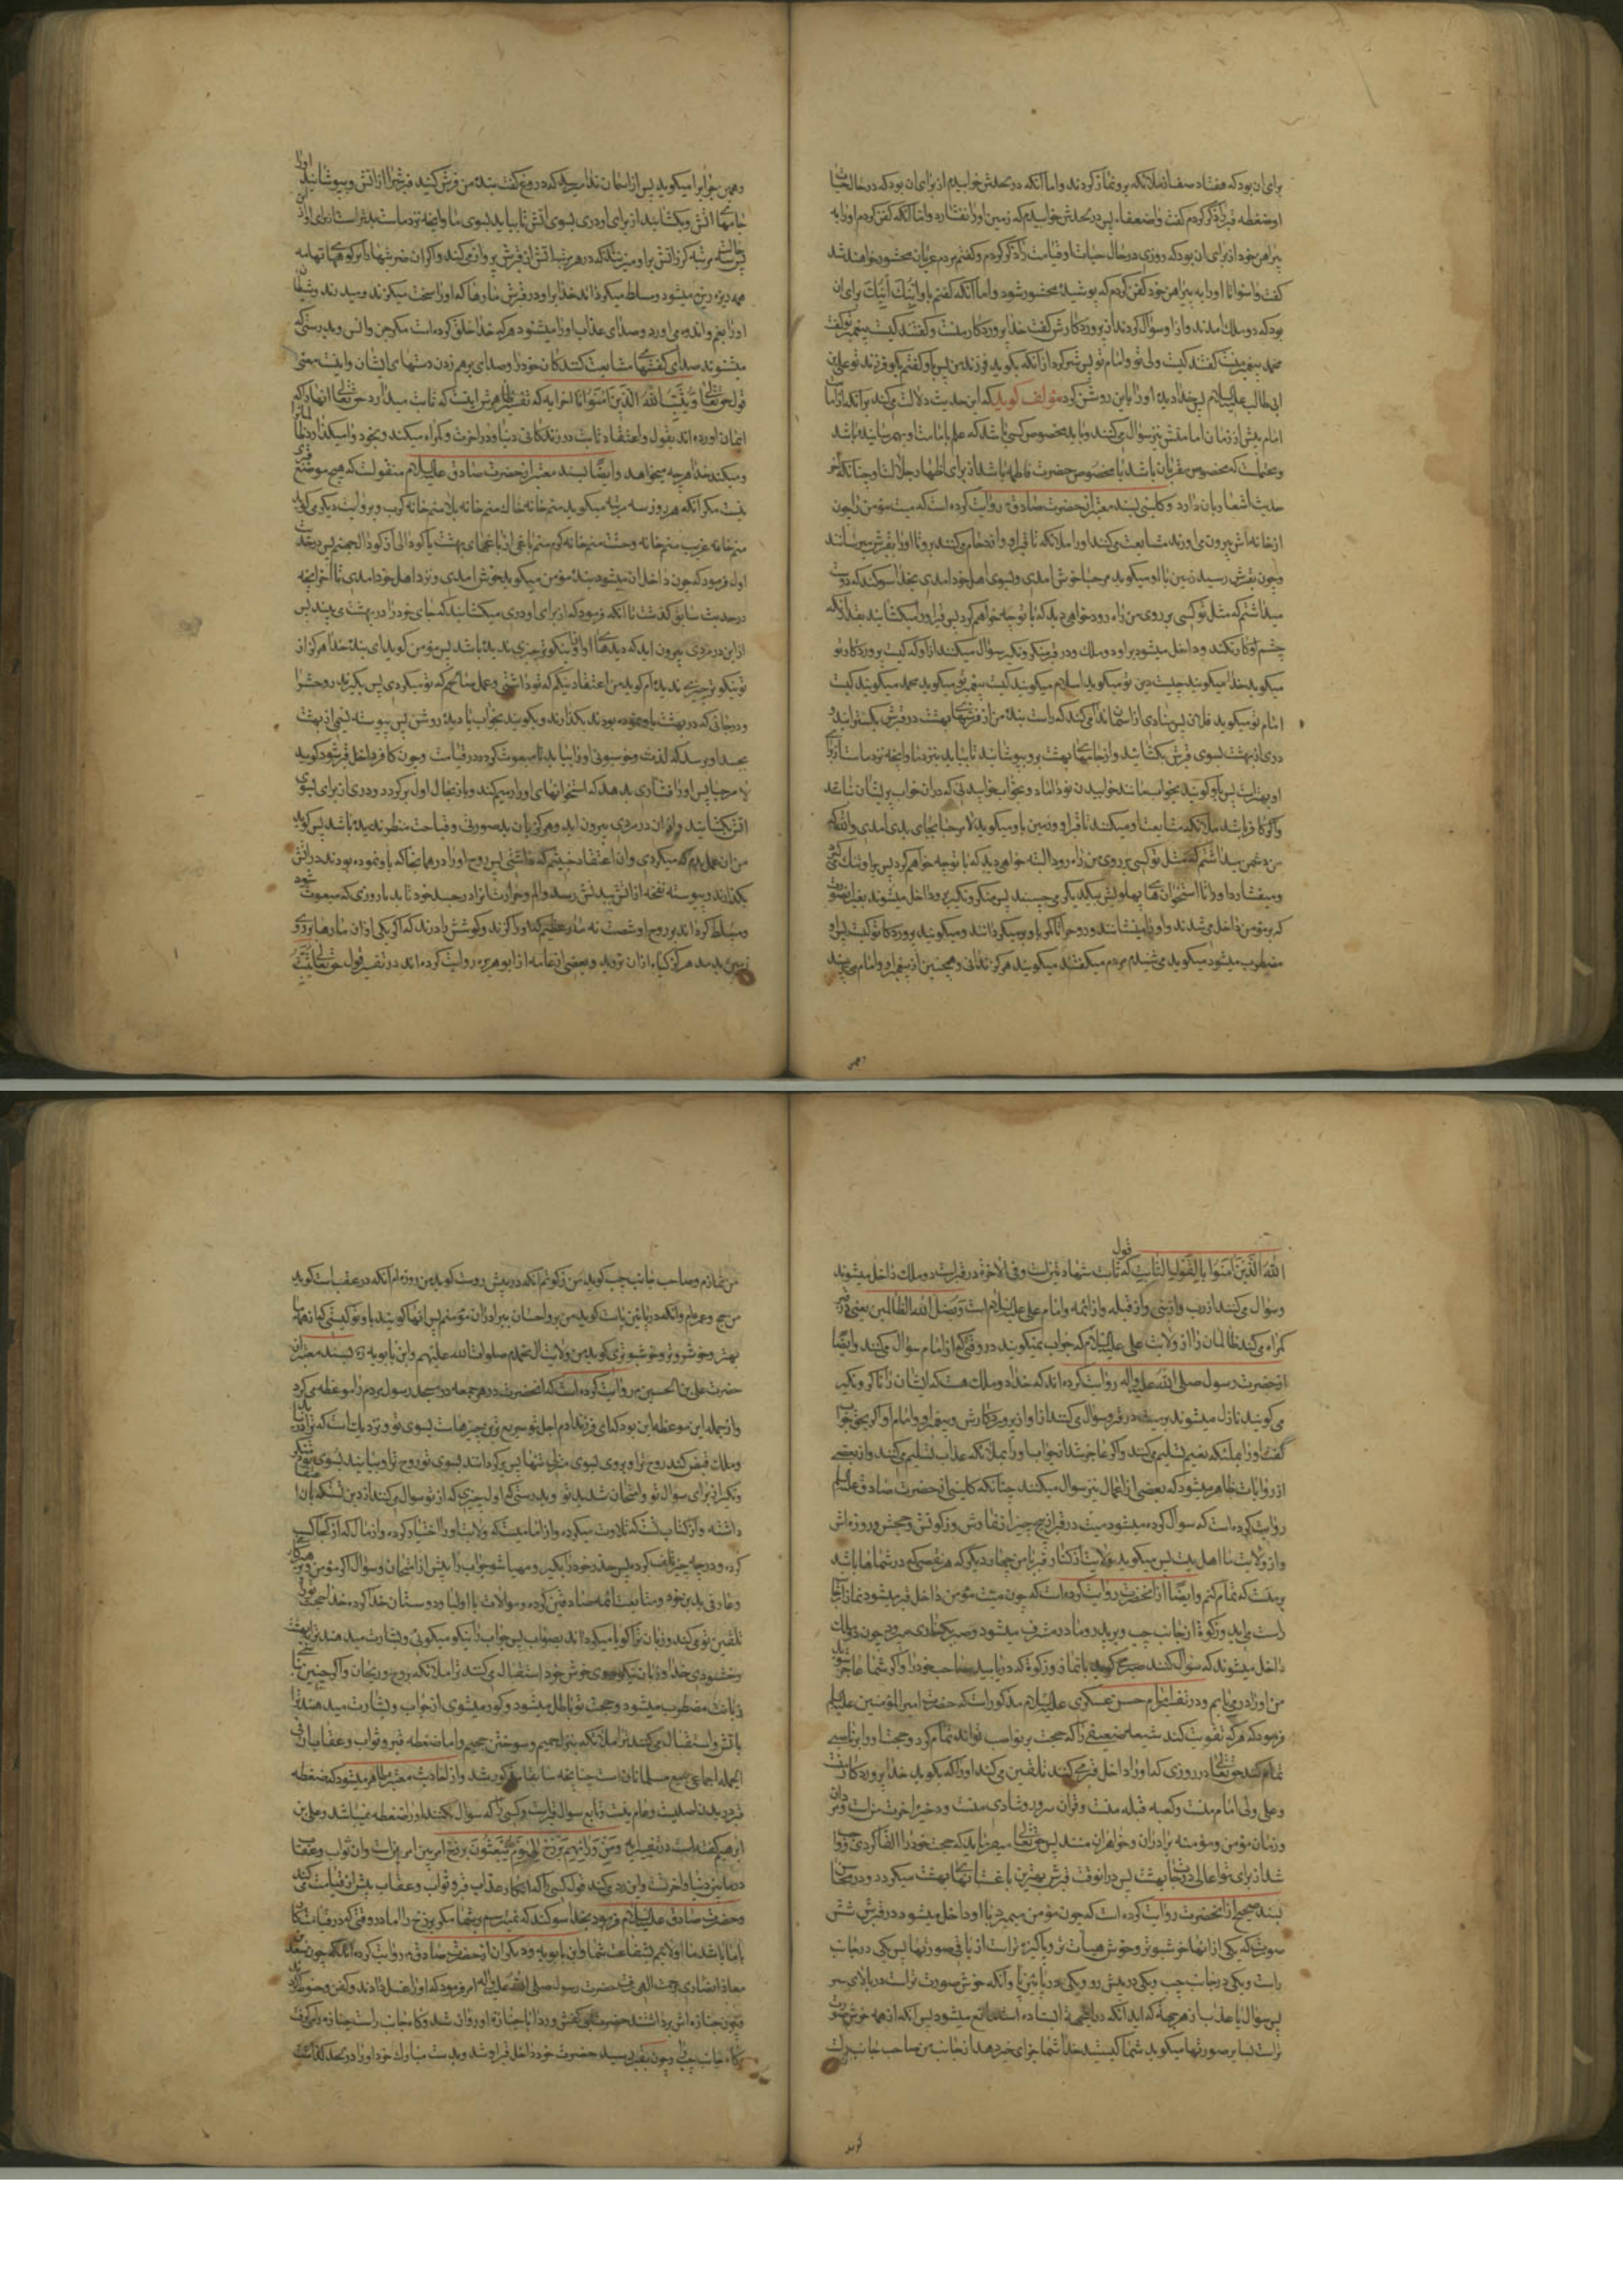 برای ان بود که هفتاد صف از ملائکه برو نماز کردند و اما آنکه در لحدش خوابیدم از برای ان بود که در حال حیات
او ضغطه قبر را ذکر کردم گفت واضعفاه پس در لحدش خوابیدم که زمین او را نفشارد و اما آنکه کفن کردم او را به
پیراهن خود از برای ان بود که روزی در حال حیات او قیامت را ذکر کردم و گفتم مردم عریان محشور خواهند شد
گفت واسواتا او را به پیراهن خود کفن کردم که پوشیده محشور شود و اما آنکه گفتم باو ابنک ابنک برای ان
بود که دو ملک امدند و از او سؤال کردند از پروردگارش گفت خدا پروردگار منست و گفتند کیست پیغمبر تو گفت
محمد پیغمبر منست گفتند کیست ولی تو و امام تو پس شرم کرد از آنکه بگوید فرزند من پس باو گفتم بگو فرزند تو علی بن
ابی طالب علیه السلام پس خدا دیده او را باین روشن کرد مؤلف گوید که این حدیث دلالت می کند بر آنکه از امامت
امام پیش از زمان امامتش نیز سؤال می کنند و باید مخصوص کسی باشد که علم بامامت او بهم رسانیده باشد
و محتملست که مخصوص مقربان باشد یا مخصوص حضرت فاطمه باشد از برای اظهار جلالت او چنانکه آخر
حدیث اشعار بان دارد و کلینی بسند معتبر از حضرت صادق روایت کرده است که میت مؤمن را چون
از خانه اش بیرون می اورند مشایعت می کنند او را ملائکه تا قبر او و ازدحام می کنند برو تا او را بقبرش میرسانند
و چون بقبرش رسید زمین با او میگوید مرحبا خوش امدی و بسوی اهل خود امدی بخدا سوکند که دوست
میداشتم که مثل تو کسی بر روی من راه رود خواهی دید که با تو چه خواهم کرد پس قبر او را میکشایند بقدر آنکه
چشم او کار بکند و داخل میشود بر او دو ملک و در قبر منکر و نکیر سؤال میکنند از او که کیست پروردکار تو
میکوید خدا میکویند چیست دین تو میکوید اسلام میکویند کیست پیغمبر تو میکوید محمد میکویند کیست
امام تو میکوید فلان پس منادی از اسمان ندا می کند که راست بنده من از فرشهای بهشت در قبرش بکسترانید و
دری از بهشت بسوی قبرش بکشائید و از جامهای بهشت برو بپوشانید تا بیاید بنزد ما و انچه نزد ماست از برای
او بهتر است پس باو کویند بخواب مانند خوابیدن نو داماد و بخواب خوابیدنی که در ان خواب پریشان نباشد
و اکر کافر باشد ملائکه مشایعت او میکنند تا قبر او و زمین باو میکوید لا مرحبا بجای بدی امدی والله که
من دشمن میداشتم که مثل تو کسی بر روی من راه رود البته خواهی دید که با تو چه خواهم کرد پس بر او تنک می شود
و میفشارد او را تا استخوان های پهلوش بیکدیکر می چسبند پس منکر و نکیر برو داخل میشوند بغیر ان صورت
که بر مؤمن داخل می شدند و او را مینشانند و روح را تا کمر باو برمیکردانند و میکویند پروردکار تو کیست پس او
مضطرب میشود میکوید می شنیدم مردم میکفتند میکویند هرکز ندانی و همچنین از پیغمبر او و امام می پرسند
همین
و همین جوابرا میکوید پس از اسمان ندا میرسد که دروغ کفت بنده من فرش کنید قبرش را از اتش و بپوشانید او را
جامهای اتش و بکشایید از برای او دری بسوی اتش تا بیاید بسوی ما و انچه نزد ماست بدتر است از برای او از این
پس سه مرتبه کرز اتش بر او میزنند که در هر مرتبه اتش از قبرش پرواز می کند و اکر ان ضربتها را بر کوههای تهامه
همه ریزه ریزه میشود و مسلط میکرداند خدا بر او در قبرش مارها که او را سخت میکزند و میدرند و شیطان
او را بغم و اندوه می اورد و صدای عذاب او را میشنود هر که خدا خلق کرده است مکر جن و انس و بدرستی که
میشنوند صدای کفشهای مشایعت کنندکان خود را و صدای برهم زدن دستهای ایشان و اینست معنی
قول حق تعالی و یثبت الله الذین امنوا تا اخر ایه که تفسیر ظاهرش اینست که ثابت میدارد حق تعالی انها را که
ایمان اورده اند بقول و اعتقاد ثابت در زندکانی دنیا و در اخرت و کمراه میکند و بخود وامیکذارد ظالمانرا
و میکند خدا هر چه میخواهد و ایضا بسند معتبر از حضرت صادق علیه السلام منقولست که هیچ موضع قبری
نیست مکر انکه هر روز سه مرتبه میکوید منم خانه خاک منم خانه بلا منم خانه کرم و بروایت دیکر می کوید
منم خانه غربت منم خانه وحشت منم خانه کرم منم باغی از باغهای بهشت یا کودالی از کودالهای جهنم پس در حدیث
اول فرمود که چون داخل ان میشود بنده مؤمن میکوید خوش امدی و نزد اهل خود امدی تا اخر انچه
در حدیث سابق کذشت تا انکه فرمود که از برای او دری میکشایند که جای خود را در بهشت می بیند پس
از این در مردی بیرون اید که دیدهای او از او نیکوتر چیزی ندیده باشد پس مؤمن کوید ای بنده خدا هرکز از
تو نیکوتر چیزی ندیده ام کوید من اعتقاد نیکم که تو داشتی و عمل صالحم که تو میکردی پس بکیرند روحش را
و در جائی که در بهشت باو نموده بودند بکذارند و بکویند بخواب با دیده روشن پس پیوسته نسیمی از بهشت
بجسد او برسد که لذت و خوشبوئی او را بیابد تا مبعوث کردد در قیامت و چون کافر داخل قبر شود کوید
لا مرحبا پس او را فشاری بدهد که استخوانهای او را رمیم کند و باز بحال اول برکردد و دری از برای او بسوی
اتش بکشایند و از ان در مردی بیرون اید و هرکز بان بد صورتی و قباحت منظر ندیده باشد پس کوید
من ان عمل بدم که میکردی و ان اعتقاد خبیثم که داشتی پس روح او را در همان جا که باو نموده بودند در اتش
بکذارند و پیوسته نفخه از اتش بجسدش رسد و الم و حرارت انرا در جسد خود تا بد تا روزی که مبعوث شود
و مسلط کرداند بر روح او شصت و نه مار عظیم که او را کزند و کوشش را درند که اکر یکی از ان مارها بر روی
زمین بدمد هرکز کیاه از ان نروید و بعضی از عامه از ابو هریره روایت کرده اند در تفسیر قول حق تعالی یثبت
الله الذین امنوا بالقول الثابت که قول ثابت شهادتین است و فی الاخرة در قبر است دو ملک داخل میشوند
و سؤال می کنند از رب و از نبی و از قبله و از ائمه و امام علی علیه السلام است و یضل الله الظالمین یعنی در قبر
کمراه می کند ظالمان را از ولایت علی علیه السلام که جواب نمیکویند در وقتی که از امام سؤال می کنند و ایضا
از حضرت رسول صلی الله علیه و اله روایت کرده اند که خدا را دو ملک هست که ایشان را ناکر و نکیر
می کویند نازل میشوند بر میت در قبر و سؤال می کنند از او از پروردکارش و پیغمبر او و امام او اکر بحق جواب
کفت او را بملائکه نعیم تسلیم می کنند و اکر عاجز شد از جواب او را بملائکه عذاب تسلیم می کنند و از بعضی
از روایات ظاهر میشود که بعضی از اعمال نیز سؤال میکنند چنانکه کلینی از حضرت صادق علیه السلام
روایت کرده است که سؤال کرده میشود میت در قبر از پنج چیز از نمازش و زکوتش و حجش و روزه اش
و از ولایت ما اهل بیت پس میکوید ولایت از کنار قبر بان چهار دیکر که هر نقصی که در شماها باشد
بر منست که تمام کنم و ایضا از انحضرت روایت کرده است که چون میت مؤمن داخل قبر میشود نماز از جانب
راست می اید و زکوة از جانب چپ و بر پدر و مادر مشرف میشود و صبر بکناری میرود چون دو ملک
داخل میشوند که سؤال کنند صبر می کوید بانماز و زکوة که دریابید صاحب خود را و اکر شما عاجز شوید
من او را در می یابم و در تفسیر امام حسن عسکری علیه السلام مذکور است که حضرت امیر المؤمنین علیه السلام
فرمود که هر که تقویت کند شیعه ضعیفی را که حجت بر نواصب تواند تمام کرد و حجت او را بر ناصبی
تمام کند حق تعالی در روزی که او را داخل قبر می کنند تلقین می کند او را که بکوید خدا پروردکار منست
و علی ولی امام منست و کعبه قبله منست و قران سرور و شادی منست و ذخیره اخرت منست و مردان
و زنان مؤمن و مؤمنه برادران و خواهران منند پس حق تعالی میفرماید که حجت خود را القا کردی واجب
شد از برای تو اعالی درجات بهشت پس در انوقت قبرش بهترین باغستانهای بهشت میکردد و در محاسن
بسند صحیح از انحضرت روایت کرده است که چون مؤمن میمیرد با او داخل میشود در قبرش شش
صورت که یکی از انها خوشبوتر و خوش هیات تر و پاکیزه تر است از باقی صورتها پس یکی در جانب
راست و یکی در جانب چپ و یکی در پیش رو و یکی در پائین پا و آنکه خوش صورت تر است در بالای سر
پس سؤال یا عذاب از هر جهت که اید آنکه در انجهة ایستاده است مانع میشود پس آنکه از همه خوش صورت
تر است بسایر صورتها میکوید شما کیستید خدا شما را جزای خیر دهد از جانب من صاحب جانب راست
کوید
من نمازم و صاحب جانب چپ کوید من زکوتم آنکه در پیش روست کوید من روزه ام آنکه در عقبست کوید
من حج و عمره ام و آنکه در پائین پاست کوید من بر و احسان ببرادران مؤمنم پس انها کویند باو تو کیستی که از همه ما
بهتر و خوش روتر و خوشبوتری کوید من ولایت ال محمدم صلوات الله علیهم و ابن بابویه بسند معتبر از
حضرت علی بن الحسین روایت کرده است که انحضرت در هر جمعه در مسجد رسول مردم را موعظه می کرد
و از جمله این موعظه این بود که ای فرزند ادم اجل تو سریع ترین چیزهاست بسوی تو و نزدیکست که ترا دریابد
و ملک قبض کند روح ترا و بروی بسوی منزلی تنها پس برکردانند بسوی تو روح ترا و بیایند بسوی تو منکر
و نکیر از برای سؤال تو و امتحان شدید تو و بدرستی که اول چیزی که از تو سؤال می کنند از دین تست که بان
داشته و از کتاب تست که تلاوت میکرده و از امامیست که ولایت او را اختیار کرده و از مال که از کجا کسب
کرده و در چه چیز تلف کرده پس حذر خود را بکیر و مهیا شو جواب را پیش از امتحان و سؤال اکر مؤمن و پرهیزکار
و عارفی بدین خود و متابعت ائمه صادقین کرده و موالات با اولیا و دوستان خدا کرده خدا حجت تورا
تلقین تو می کند و زبان ترا کویا میکرداند بصواب پس جواب را نیکو میکوئی و بشارت میدهند ترا ببهشت
و خشنودی خدا و زنان نیکوروی خوش خو و استقبال می کنند ترا ملائکه بروح و ریحان و اکر چنین نباشی
زبانت مضطرب میشود و حجت تو باطل میشود و کور میشوی از جواب و بشارت میدهند ترا
باتش و استقبال می کنند ترا ملائکه بنزل حمیم و سوختن جحیم و اما ضغطه قبر و ثواب و عقاب ان فی
الجمله اجماعی جمیع مسلمانان است چنانچه سابقا مذکور شد و از احادیث معتبره ظاهر میشود که ضغطه
قبر در بدن اصلیست و عام نیست و تابع سؤال قبر است و کسی را که سؤال نکنند او را ضغطه نمیباشد و علی بن
ابرهیم کفته است در تفسیر ایه و من ورائهم برزخ الی یوم یبعثون برزخ امر بین امرین است و ان ثواب و عقاب
در مابین دنیا و اخرت و این رد می کند قول کسی را که انکار عذاب قبر و ثواب و عقاب پیش از قیامت می کند
و حضرت صادق علیه السلام فرمود بخدا سوکند که نمیترسم بر شما مکر برزخ را اما در وقتی که در قیامت کار
با ما باشد ما اولائیم بشفاعت شما و ابن بابویه و دیکران از حضرت صادق روایت کرده اند که چون سعد
معاذ انصاری برحمت الهی رفت حضرت رسول صلی الله علیه و اله امر فرمود که او را غسل دادند و کفن و حنوط کردند
و چون جنازه اش برداشتند حضرت بی کفش و ردا با جنازه او روان شد و کاه جانب راست جنازه را میکرفت
و کاه جانب چپ و چون بقبر رسید حضرت خود داخل قبر او شد و بدست مبارک خود او را در لحد کذاشت